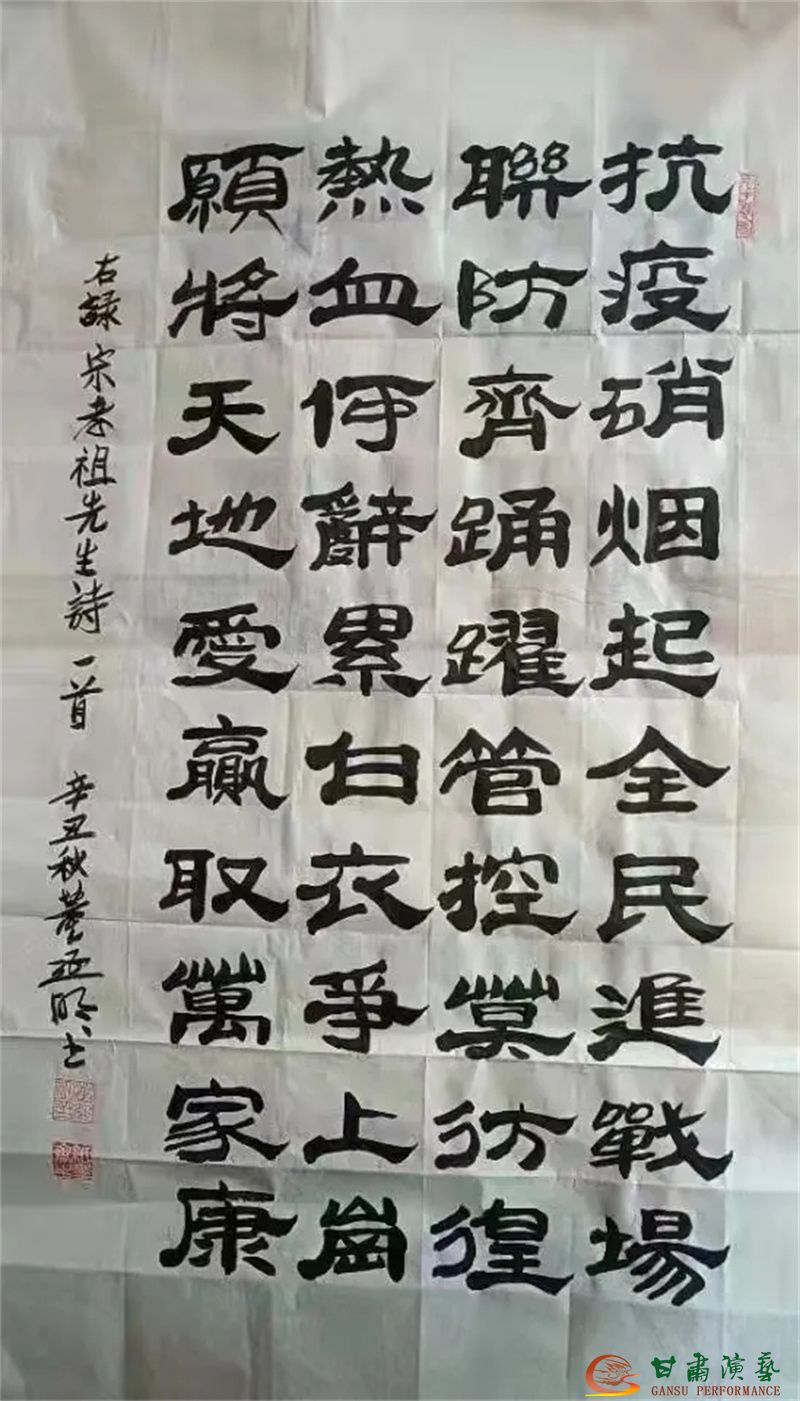 抗疫硝烟起全民進戰場
聯防齊踊躍管控莫彷徨
熱血何辭累白衣爭上崗
願將天地愛贏取萬家康
右録宗孝祖先生詩一首 辛丑秋董亚明书
甘肅演藝
GANSU PERFORMANCE